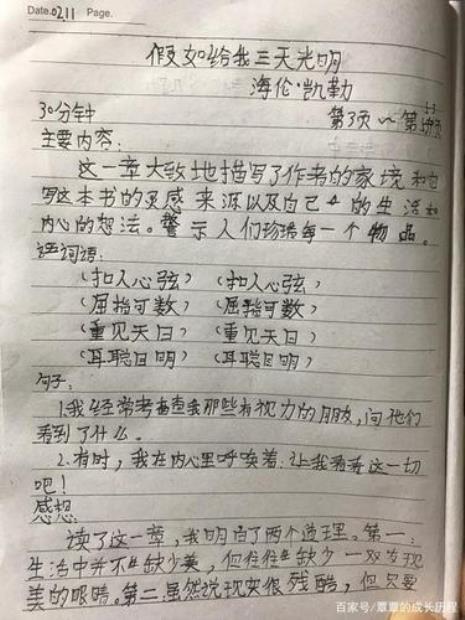 Date.0211 Page.
假如给我三天光明
海伦·凯勒
30分钟 第3页~第 页
主要内容:
这一章大致地描写了作者的家境和
写这本书的灵感来源以及自己 的生活和
内心的想法。警示人们珍惜每一个物品。
词语:
(扣人心弦) (扣人心弦)
(屈指可数) (屈指可数)
(重见天日) (重见天日)
(耳聪目明) (耳聪目明)
句子:
1.我经常考查我那些有视力的朋友,问他们
看到了什么。
2.有时,我在内心里呼唤着:让我看看这一切
吧!
感想:
读了这一章,我明白了两个道理。第一:
生活中并不 缺少美,但往往 缺少一双发现
美的眼睛。第二:虽然说现实很残酷,但只要
百家号/覃覃的成长历程